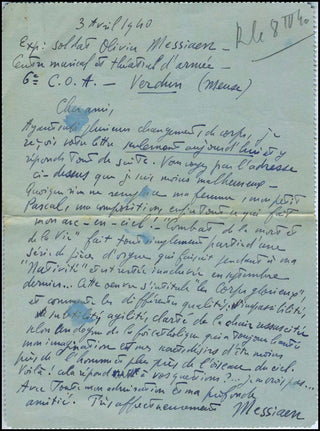 3 Avril 1940
R le 8 IV 40
Exp: soldat Olivier Messiaen -
Centre musical et théâtral d'armée -
6e C.O.A. - Verdun (Meuse)
Cher ami,
Ayant subi plusieurs changements de corps, je
reçois votre lettre seulement aujourd'hui et y
réponds tout de suite. Vous voyez par l'adresse
ci-dessus que je suis moins malheureux -
Quoique rien ne remplace ma femme, mon petit
Pascal, ma composition, enfin tout ce qui fait
mon arc-en-ciel! "Combat de la mort et
de la Vie" fait tout simplement partie d'une
série de pièces d'orgue qui faisait pendant à ma
"Nativité" et était inachevée en septembre
dernier... Cette œuvre s'intitule "les Corps glorieux",
et commente les différentes qualités d'impassibilité,
subtilité, agilité, clarté de la chair ressuscitée
selon un dogme de la foi catholique qui a toujours hanté
mon imagination et mes désirs d'être moins
près de l'homme et plus près de l'oiseau du ciel.
Voilà! cela répond à vos questions?... je crois pas...
Avec toute mon admiration et ma profonde
amitié. Très affectueusement
Messiaen